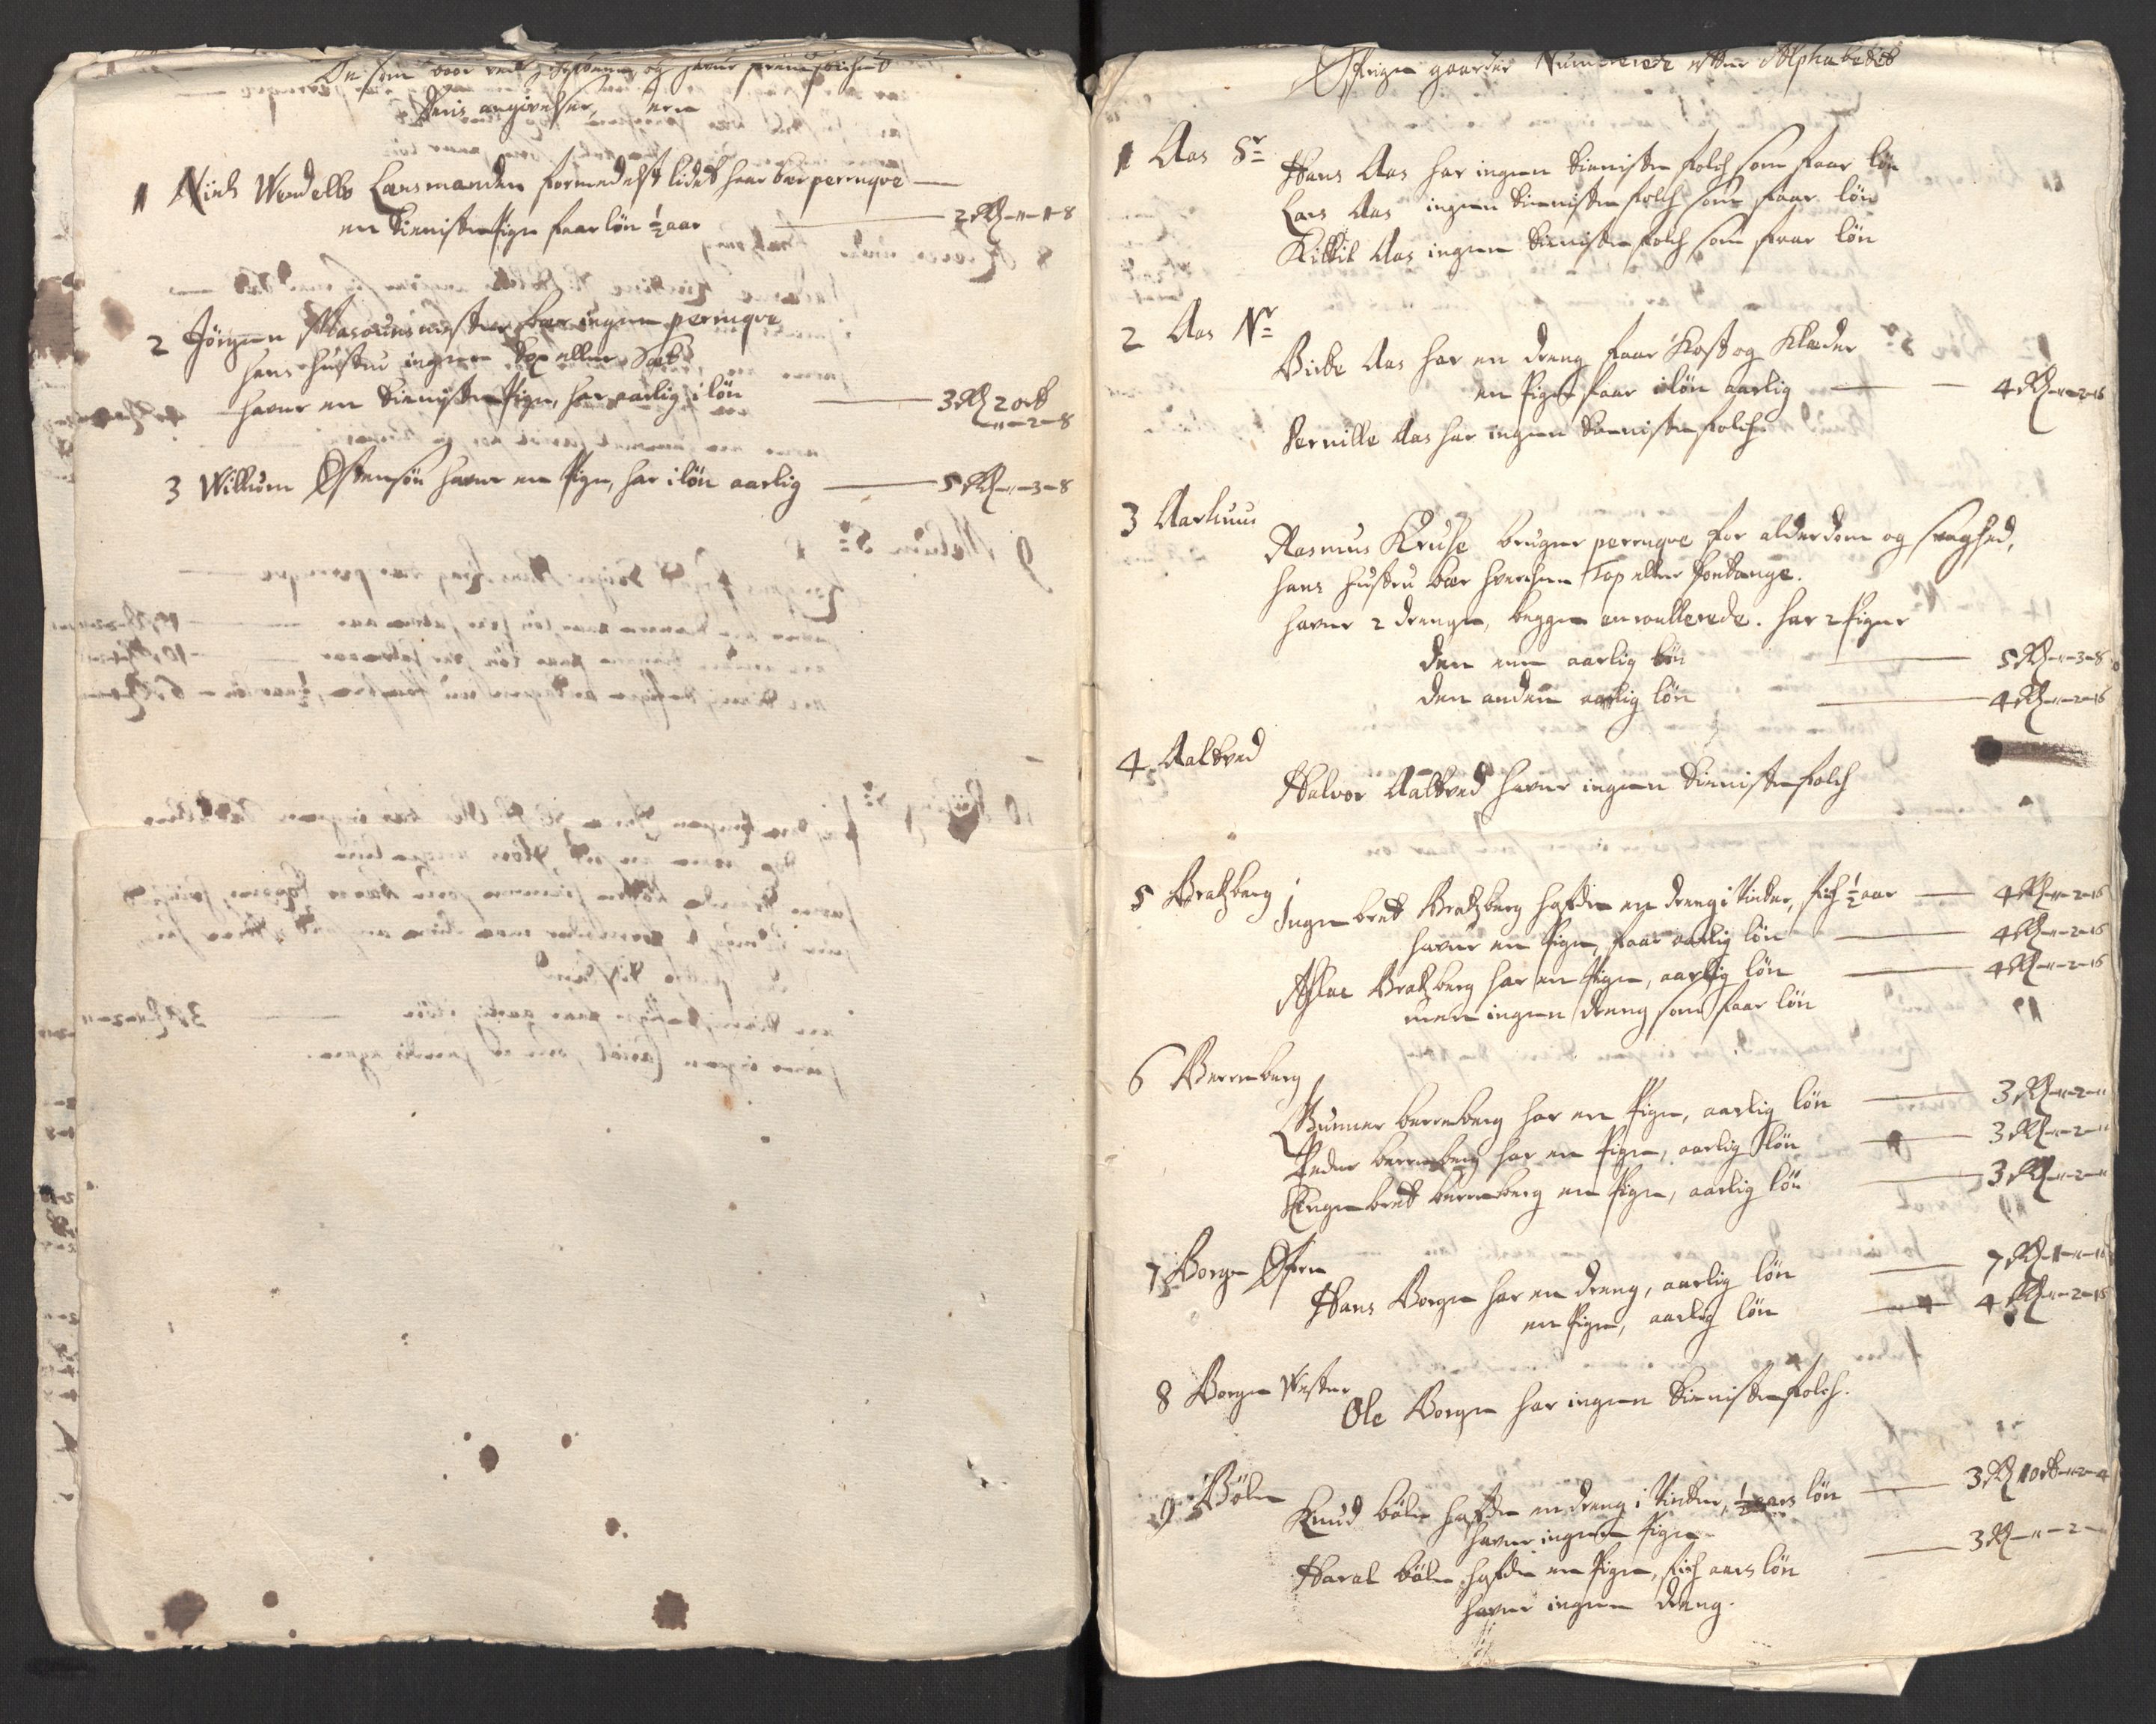 De som boer ved og
Deris angivelser, ere
1 Niels Wendelbo Lensmanden formedelst lidet haar bær perruqve
en tieniste Pige faar løn ½ aar 2 Rd-"-1-8
2 Jörgen Masouvmester bær ingen perruqve
hans hustru ingen Top eller Sæt
haver en tieniste Pige, har aarlig i løn 3 Rd 2 ort
"-2-8
3 Willum Østensön haver en Pige, har i lön aarlig 5 Rd-"-3-8
Øfrige gaarder Nummerede efter Alphabetet
1 Aas Sr
Hans Aas har ingen tieniste folch som faar lön
Lars Aas ingen tieniste folch som faar løn
Kittil Aas ingen tieniste folch som faar løn
2 Aas Nr
Birte Aas har en dreng faar Kost og Klæder
en Pige faar i løn aarlig 4 Rd-"-2-16
Pernille Aas har ingen tieniste folch
3 Aarhuus
Rasmus Kruse bruger perruqve for alderdom og svaghed,
hans hustru bær hverchen Top eller fontange.
haver 2 drenge, begge enroullerede. har 2 Piger
den eene aarlig lön 5 Rd-"-3-8
den anden aarlig lön 4 Rd-"-2-16
4 Aaltved
Halvor Aaltved haver ingen tieniste folch
5 Bratzberg
Ingebret Bratzberg hafde en dreng i vinter, fich ½ aar 4 Rd-"-2-16
haver en Pige, faar aarlig løn 4 Rd-"-2-16
Aslac Bratzberg har en Pige, aarlig løn 4 Rd-"-2-16
men ingen dreng som faar lön
6 Berreberg
Gunner berreberg har en Pige, aarlig løn 3 Rd-"-2-"
Peder berreberg har en Pige, aarlig løn 3 Rd-"-2-"
Engebret berreberg en Pige, aarlig lön 3 Rd-"-2-"
7 Borge Øfre
Hans Borge har en dreng, aarlig løn 7 Rd-1-"-16
en Pige, aarlig løn 4 Rd-"-2-16
8 Borge Wester
Ole Borge har ingen tieniste folch.
9 Böle
Knud böle hafde en dreng i vinter, ½ aars løn 3 Rd 1 ort-"-2-4
haver ingen Pige
Haral böle hafde en Pige, fich aars lön 3 Rd-"-2-"
haver ingen dreng.